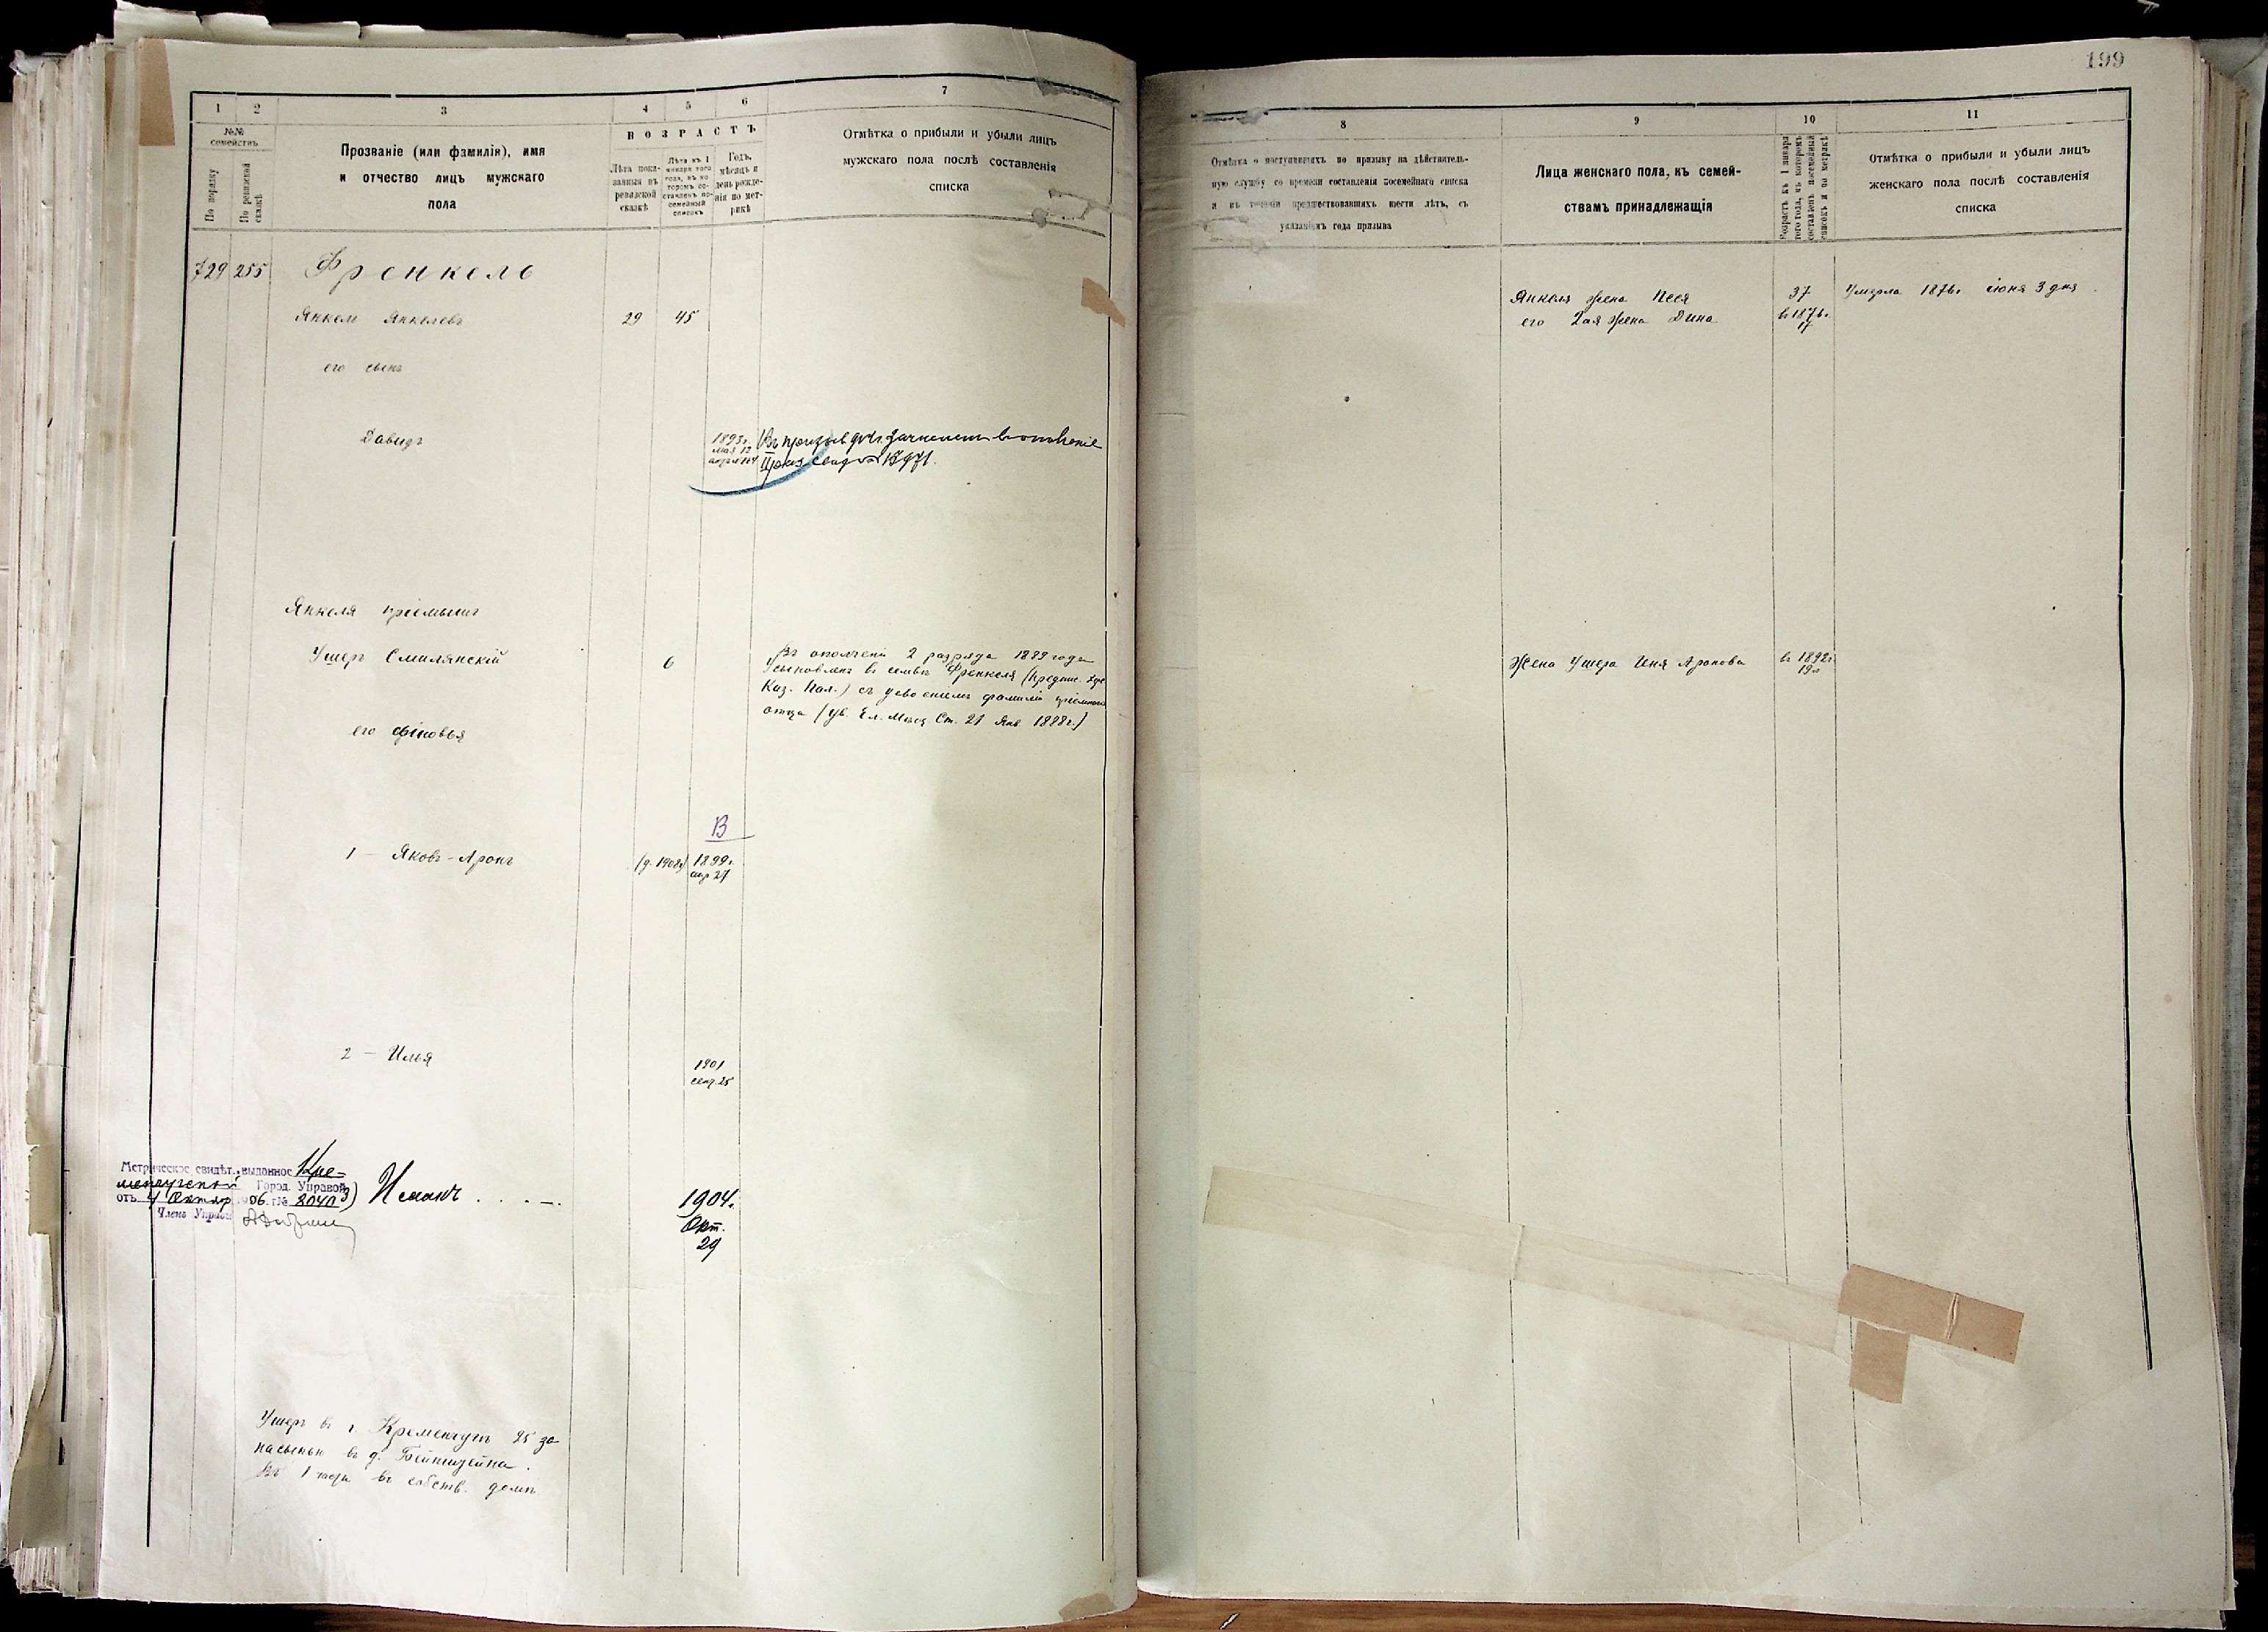 199
1 2 3 4 5 6 7
№№ семействъ
По порядку
По ревизской сказкѣ
Прозваніе (или фамилія), имя
и отчество лицъ мужскаго
пола
ВОЗРАСТЪ
Лѣта пока-
занныя въ
ревизской
сказкѣ
Лѣта къ 1
января того
года, въ ко
торомъ со-
ставленъ по-
семейный
списокъ
Годъ,
мѣсяцъ и
день рожде-
нія по мет-
рикѣ
Отмѣтка о прибыли и убыли лицъ
мужскаго пола послѣ составленія
списка
729 255 Френкель
Янкель Янкелевъ 29 45
его сынъ
Давидъ 1893г.
мая 12
Янкеля пріемышъ
Ушеръ Смилянскій 6 Въ ополченіи 2 разряда 1899 года
Усыновленъ въ семью Френкеля (Предпис.
Каз. Пал.) съ усвоеніемъ фамиліи пріемнаго
отца (ув. Ел. Мѣщ. Ст. 21 Янв 1898г.)
его сыновья
В
1 – Яковъ-Аронъ 1899г.
апр 27
2 – Илья 1901
сент. 25
Метрическое свидѣт., выданное Кре-
менчугской Город. Управой
отъ 4 Октяб 1906 г. № 8040
Членъ Управы
3) Исаакъ . . . – . 1904г.
Окт.
29
Ушеръ въ г. Кременчугѣ 25 за
насыпью въ д. Бейнштейна.
въ собств. домѣ
8 9 10 11
Отмѣтка о поступившихъ по призыву на дѣйствитель-
ную службу со времени составленія посемейнаго списка
и въ теченіи предшествовавшихъ шести лѣтъ, съ
указаніемъ года призыва
Лица женскаго пола, къ семей-
ствамъ принадлежащія
Возрастъ къ 1 января
того года, въ которомъ
составленъ посемейный
списокъ и по метрикѣ
Отмѣтка о прибыли и убыли лицъ
женскаго пола послѣ составленія
списка
Янкеля жена Песя 37 Умерла 1876г іюня 3 дня
его 2ая жена Дина въ 1876г.
17
Жена Ушера Иня Аронова въ 1892г
19л